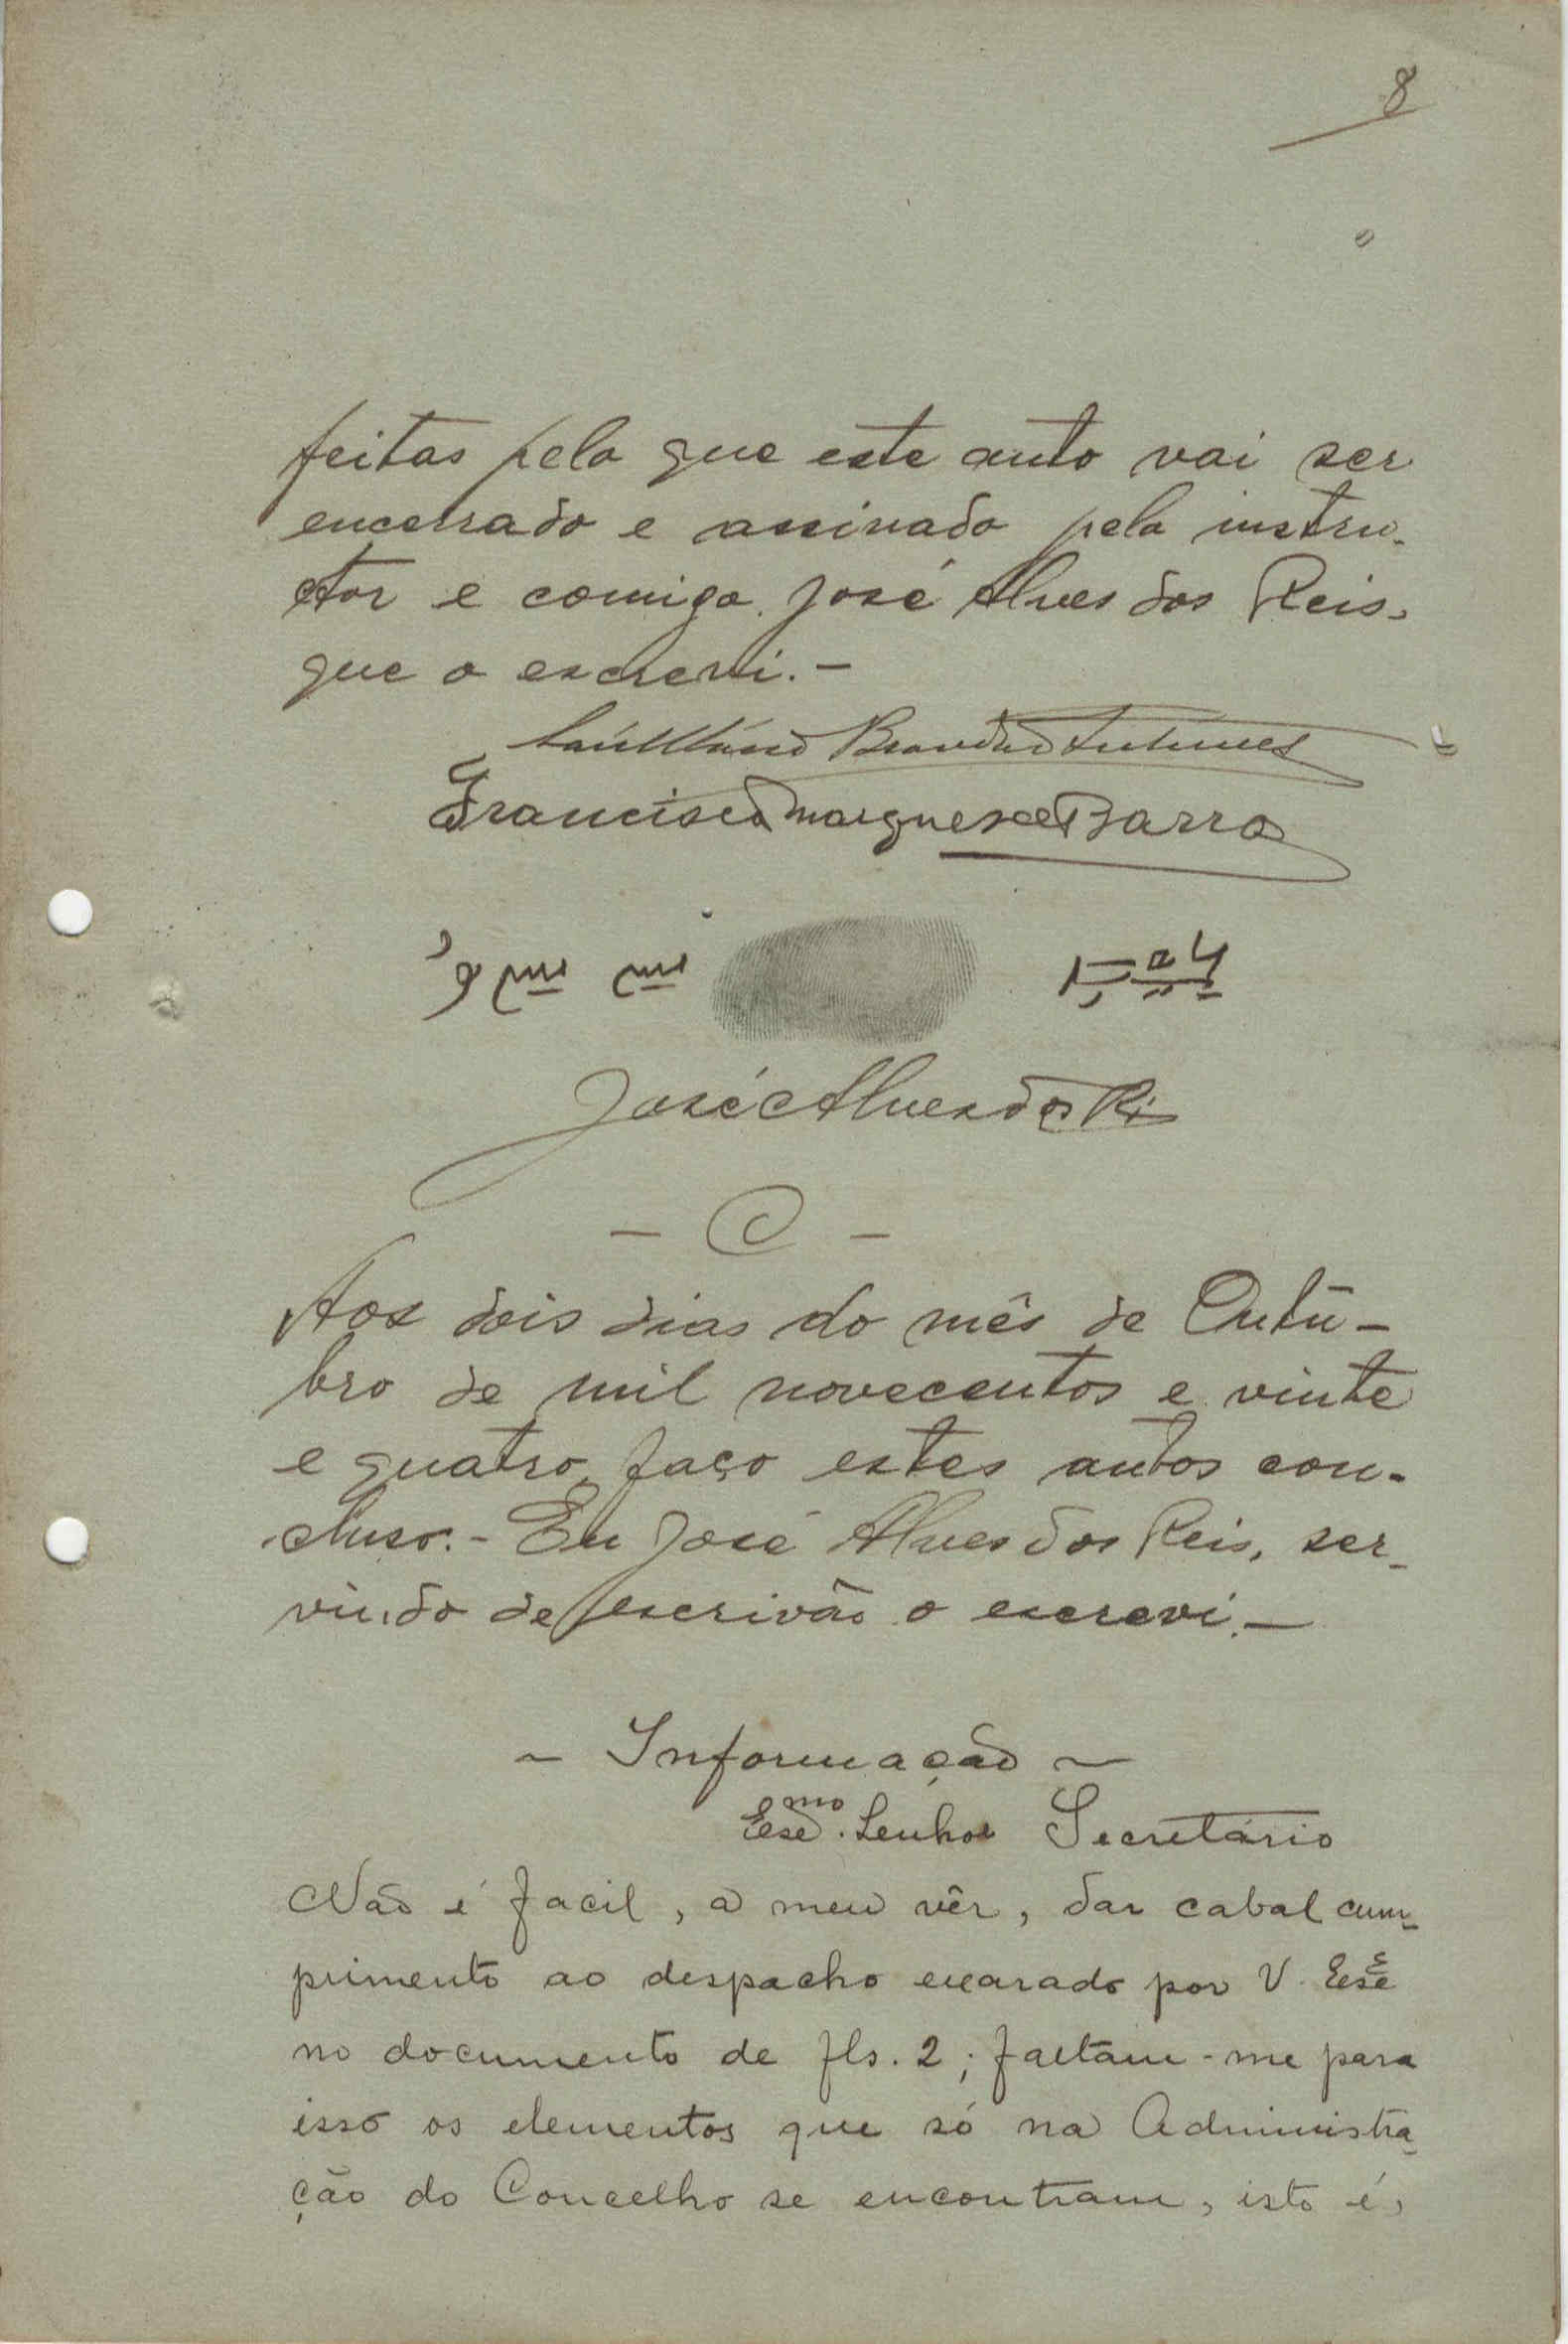 8
feitas pelo que este auto vai ser
encerrado e assinado pelo instru-
ctor e comigo José Alves dos Reis,
que o escrevi.-
Brandão Antunes
Francisco Marques de Barros
José Alves dos Reis
- C -
Aos dois dias do mês de Outu-
bro de mil novecentos e vinte
e quatro, faço estes autos con-
cluso.- Eu José Alves dos Reis, ser-
vindo de escrivão o escrevi.-
~ Informação ~
Exmo. Senhor Secretário
Não é facil, a meu vêr, dar cabal cum-
primento ao despacho exarado por V. Exª
no documento de fls. 2; faltam-me para
isso os elementos que só na Administra-
ção do Concelho se encontram, isto é,